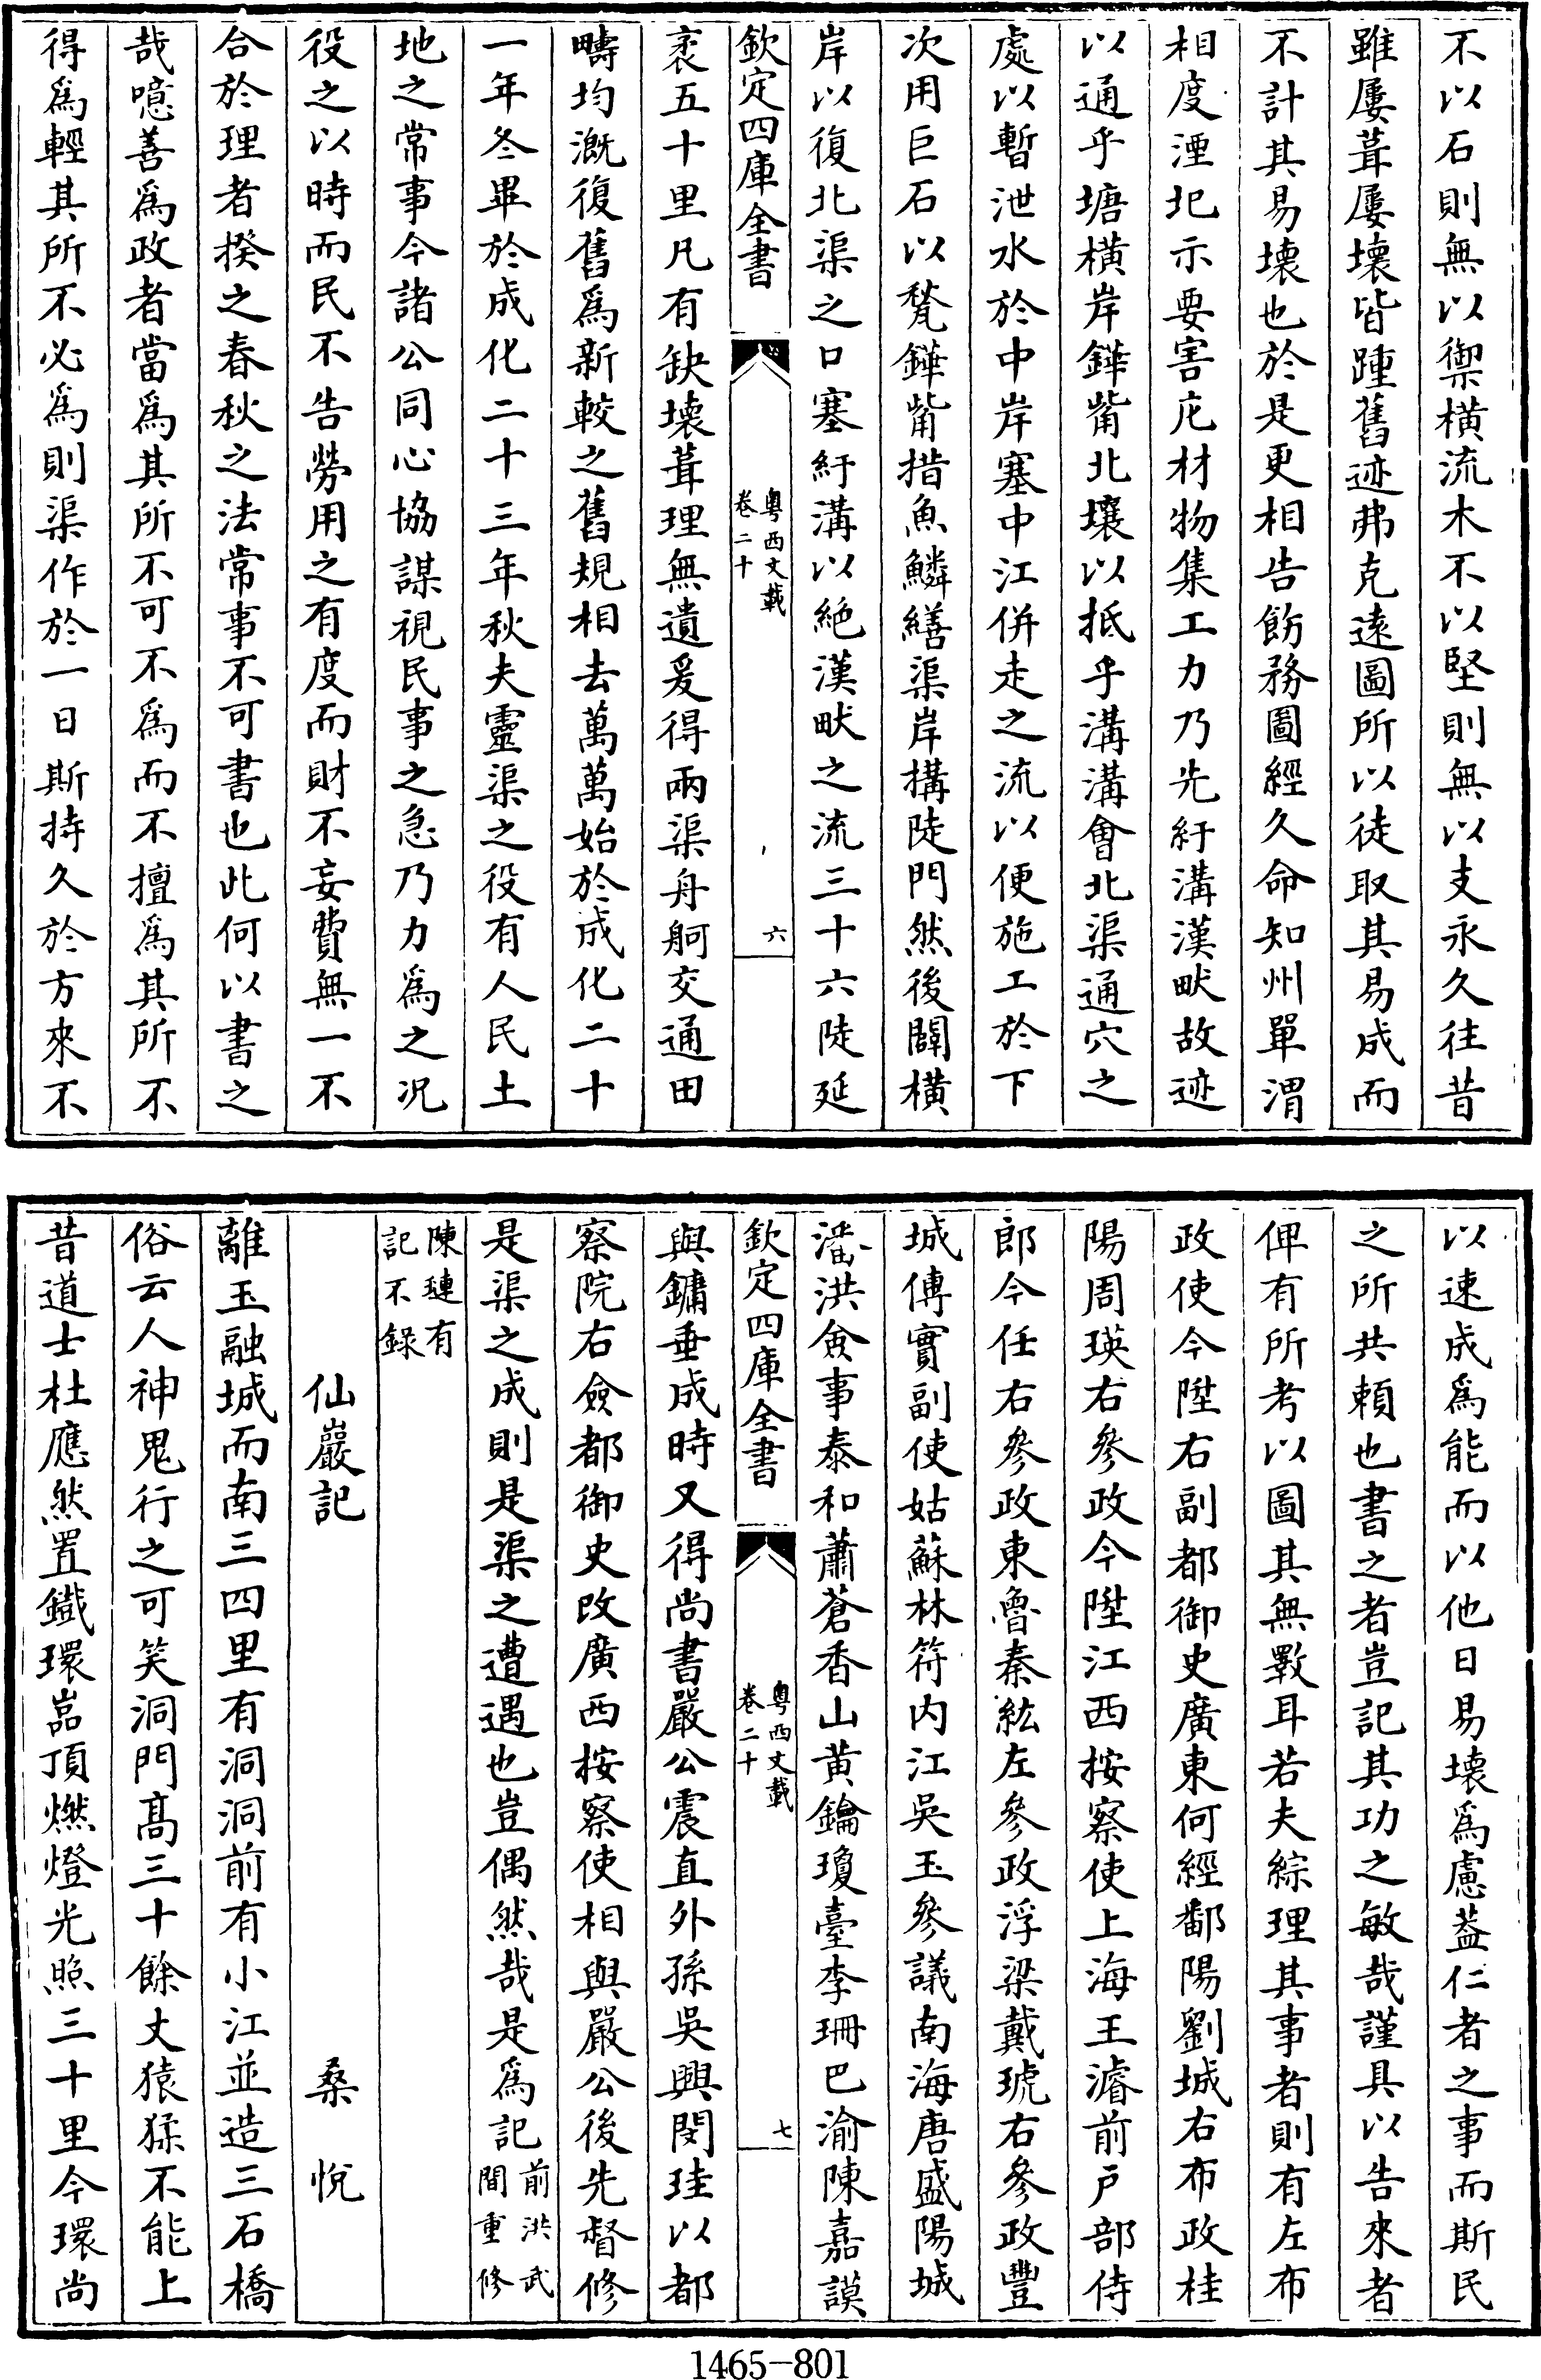 不以石則無以禦橫流木不以堅則無以支永久往昔
雖屢葺屢壞皆踵舊迹弗克遠圖所以徒取其易成而
不計其易壞也於是更相告飭務圖經久命知州單渭
相度湮圯示要害庀材物集工力乃先紆溝漢畎故迹
以通乎塘橫岸鏵觜北壤以抵乎溝溝會北渠通穴之
處以暫泄水於中岸塞中江併走之流以便施工於下
次用巨石以甃鏵觜措魚鱗繕渠岸構陡門然後闢橫
岸以復北渠之口塞紆溝以絶漢畎之流三十六陡延
欽定四庫全書
粵西文載
卷二十
六
袤五十里凡有缺壞葺理無遺爰得兩渠舟舸交通田
疇均溉復舊爲新較之舊規相去萬萬始於成化二十
一年冬畢於成化二十三年秋夫靈渠之役有人民土
地之常事今諸公同心協謀視民事之急乃力爲之况
役之以時而民不告勞用之有度而財不妄費無一不
合於理者揆之春秋之法常事不可書也此何以書之
哉噫善爲政者當爲其所不可不爲而不擅爲其所不
得爲輕其所不必爲則渠作於一日斯持久於方來不
以速成爲能而以他日易壞爲慮葢仁者之事而斯民
之所共賴也書之者豈記其功之敏哉謹具以告來者
俾有所考以圖其無斁耳若夫綜理其事者則有左布
政使今陞右副都御史廣東何經鄱陽劉城右布政桂
陽周瑛右參政今陞江西按察使上海王濬前戸部侍
郎今任右參政東魯秦紘左參政浮梁戴琥右參政豐
城傅實副使姑蘇林符内江吳玉參議南海唐盛陽城
潘洪僉事泰和蕭蒼香山黃鑰瓊臺李珊巴渝陳嘉謨
欽定四庫全書
粵西文載
卷二十
七
與鏞垂成時又得尚書嚴公震直外孫吳興閔珪以都
察院右僉都御史改廣西按察使相與嚴公後先督修
是渠之成則是渠之遭遇也豈偶然哉是爲記前洪武
間重修
陳璉有
記不錄
仙巖記　桑悅
離玉融城而南三四里有洞洞前有小江並造三石橋
俗云人神鬼行之可笑洞門高三十餘丈猿猱不能上
昔道士杜應然置鐵環嵓頂燃燈光照三十里今環尚
1465-801